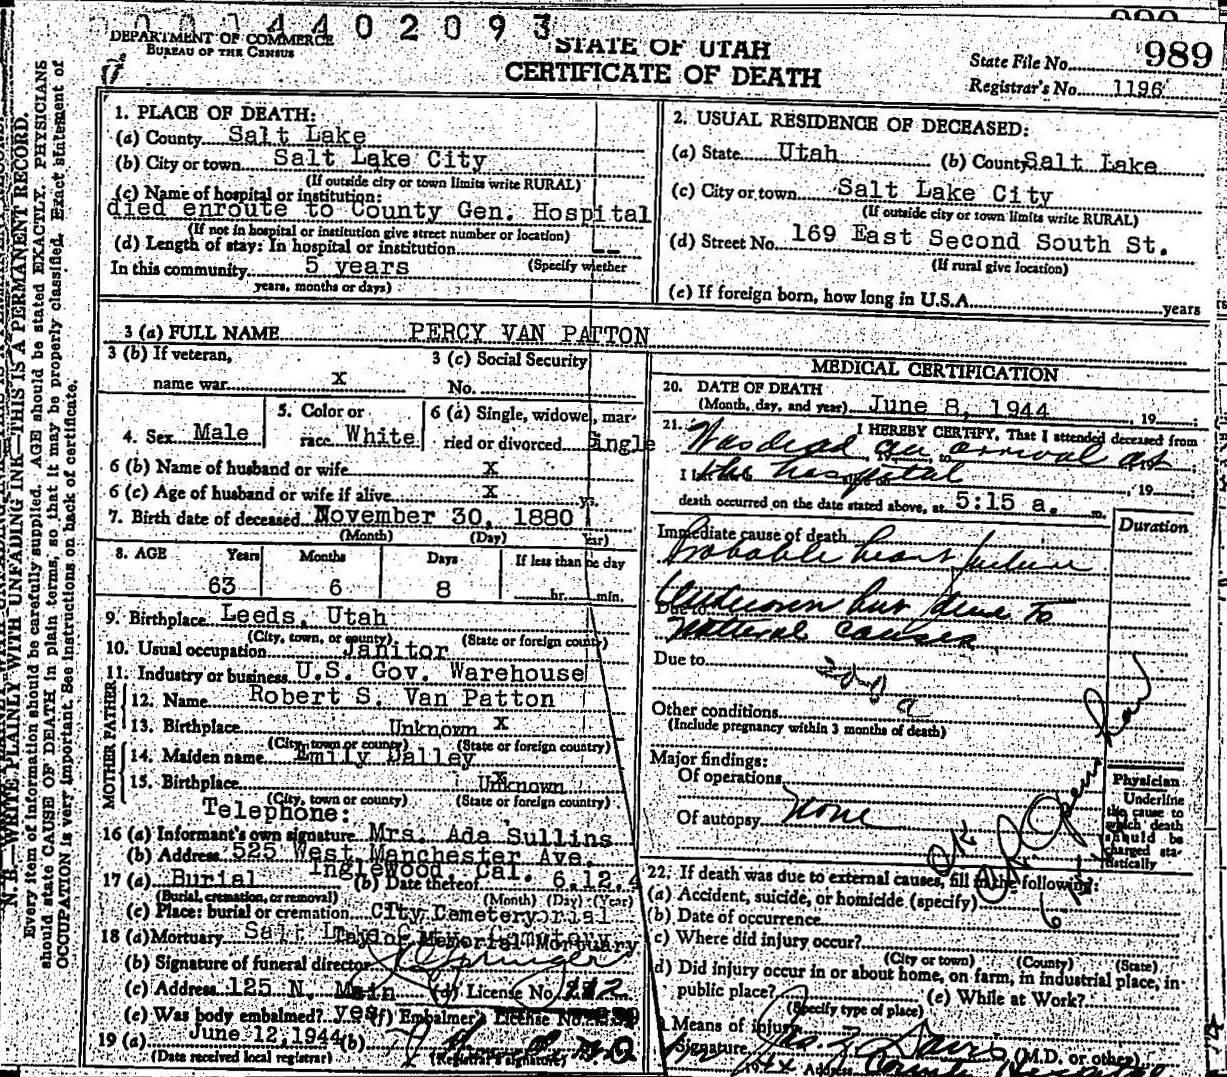 0001440 2093
DEPARTMENT OF COMMERCE
BUREAU OF THE CENSUS
STATE OF UTAH
CERTIFICATE OF DEATH
State File No. 989
Registrar's No. 1196
N. B.—WRITE PLAINLY WITH UNFADING INK—THIS IS A PERMANENT RECORD.
Every item of information should be carefully supplied. AGE should be stated EXACTLY. PHYSICIANS
should state CAUSE OF DEATH in plain terms, so that it may be properly classified. Exact statement of
OCCUPATION is very important. See instructions on back of certificate.
1. PLACE OF DEATH:
(a) County Salt Lake
(b) City or town Salt Lake City
(If outside city or town limits write RURAL)
(c) Name of hospital or institution:
died enroute to County Gen. Hospital
(If not in hospital or institution give street number or location)
(d) Length of stay: In hospital or institution --
In this community 5 years (Specify whether
years, months or days)
2. USUAL RESIDENCE OF DECEASED:
(a) State Utah (b) County Salt Lake
(c) City or town Salt Lake City
(If outside city or town limits write RURAL)
(d) Street No. 169 East Second South St.
(If rural give location)
(e) If foreign born, how long in U.S.A. years
3 (a) FULL NAME PERCY VAN PATTON
3 (b) If veteran, 3 (c) Social Security
name war X No.
4. Sex Male 5. Color or race White 6 (a) Single, widowe, married or divorced Single
6 (b) Name of husband or wife X
6 (c) Age of husband or wife if alive X yrs.
7. Birth date of deceased November 30, 1880
(Month) (Day) Year)
8. AGE Years Months Days If less than one day
63 6 8 hr. min.
9. Birthplace Leeds, Utah
(City, town, or county) (State or foreign county)
10. Usual occupation Janitor
11. Industry or business U.S. Gov. Warehouse
FATHER
12. Name Robert S. Van Patton
13. Birthplace Unknown X
(City, town or county) (State or foreign country)
MOTHER
14. Maiden name Emily Dalley
15. Birthplace Unknown
(City, town or county) (State or foreign country)
Telephone:
16 (a) Informant's own signature Mrs. Ada Sullins
(b) Address 525 West Manchester Ave.
Inglewood, Cal.
17 (a) Burial (b) Date thereof 6.12.4
(Burial, cremation, or removal) (Month) (Day) (Year)
(c) Place: burial or cremation City Cemetery
18 (a) Mortuary Salt Lake City Cemetery
Taylor Memorial Mortuary
(b) Signature of funeral director
(c) Address 125 N. Main (d) License No.
(e) Was body embalmed? yes (f) Embalmer's License No.
19 (a) June 12, 1944 (b)
(Date received local registrar) (Registrar's signature)
MEDICAL CERTIFICATION
20. DATE OF DEATH
(Month, day, and year) June 8, 1944, 19
21. I HEREBY CERTIFY, That I attended deceased from
Was dead on arrival at
the hospital
death occurred on the date stated above, at 5:15 a. m.
Immediate cause of death Duration
Probable heart failure
Unknown but due to
natural causes
Due to
Other conditions
(Include pregnancy within 3 months of death)
Major findings:
Of operations
Of autopsy None
Physician
Underline
the cause to
which death
should be
charged sta-
tistically
OK
22. If death was due to external causes, fill in the following:
(a) Accident, suicide, or homicide (specify)
(b) Date of occurrence
(c) Where did injury occur?
(City or town) (County) (State)
d) Did injury occur in or about home, on farm, in industrial place, in
public place? (e) While at Work?
(Specify type of place)
Means of injury
Signature Davis (M.D. or other)
Address County Hospital